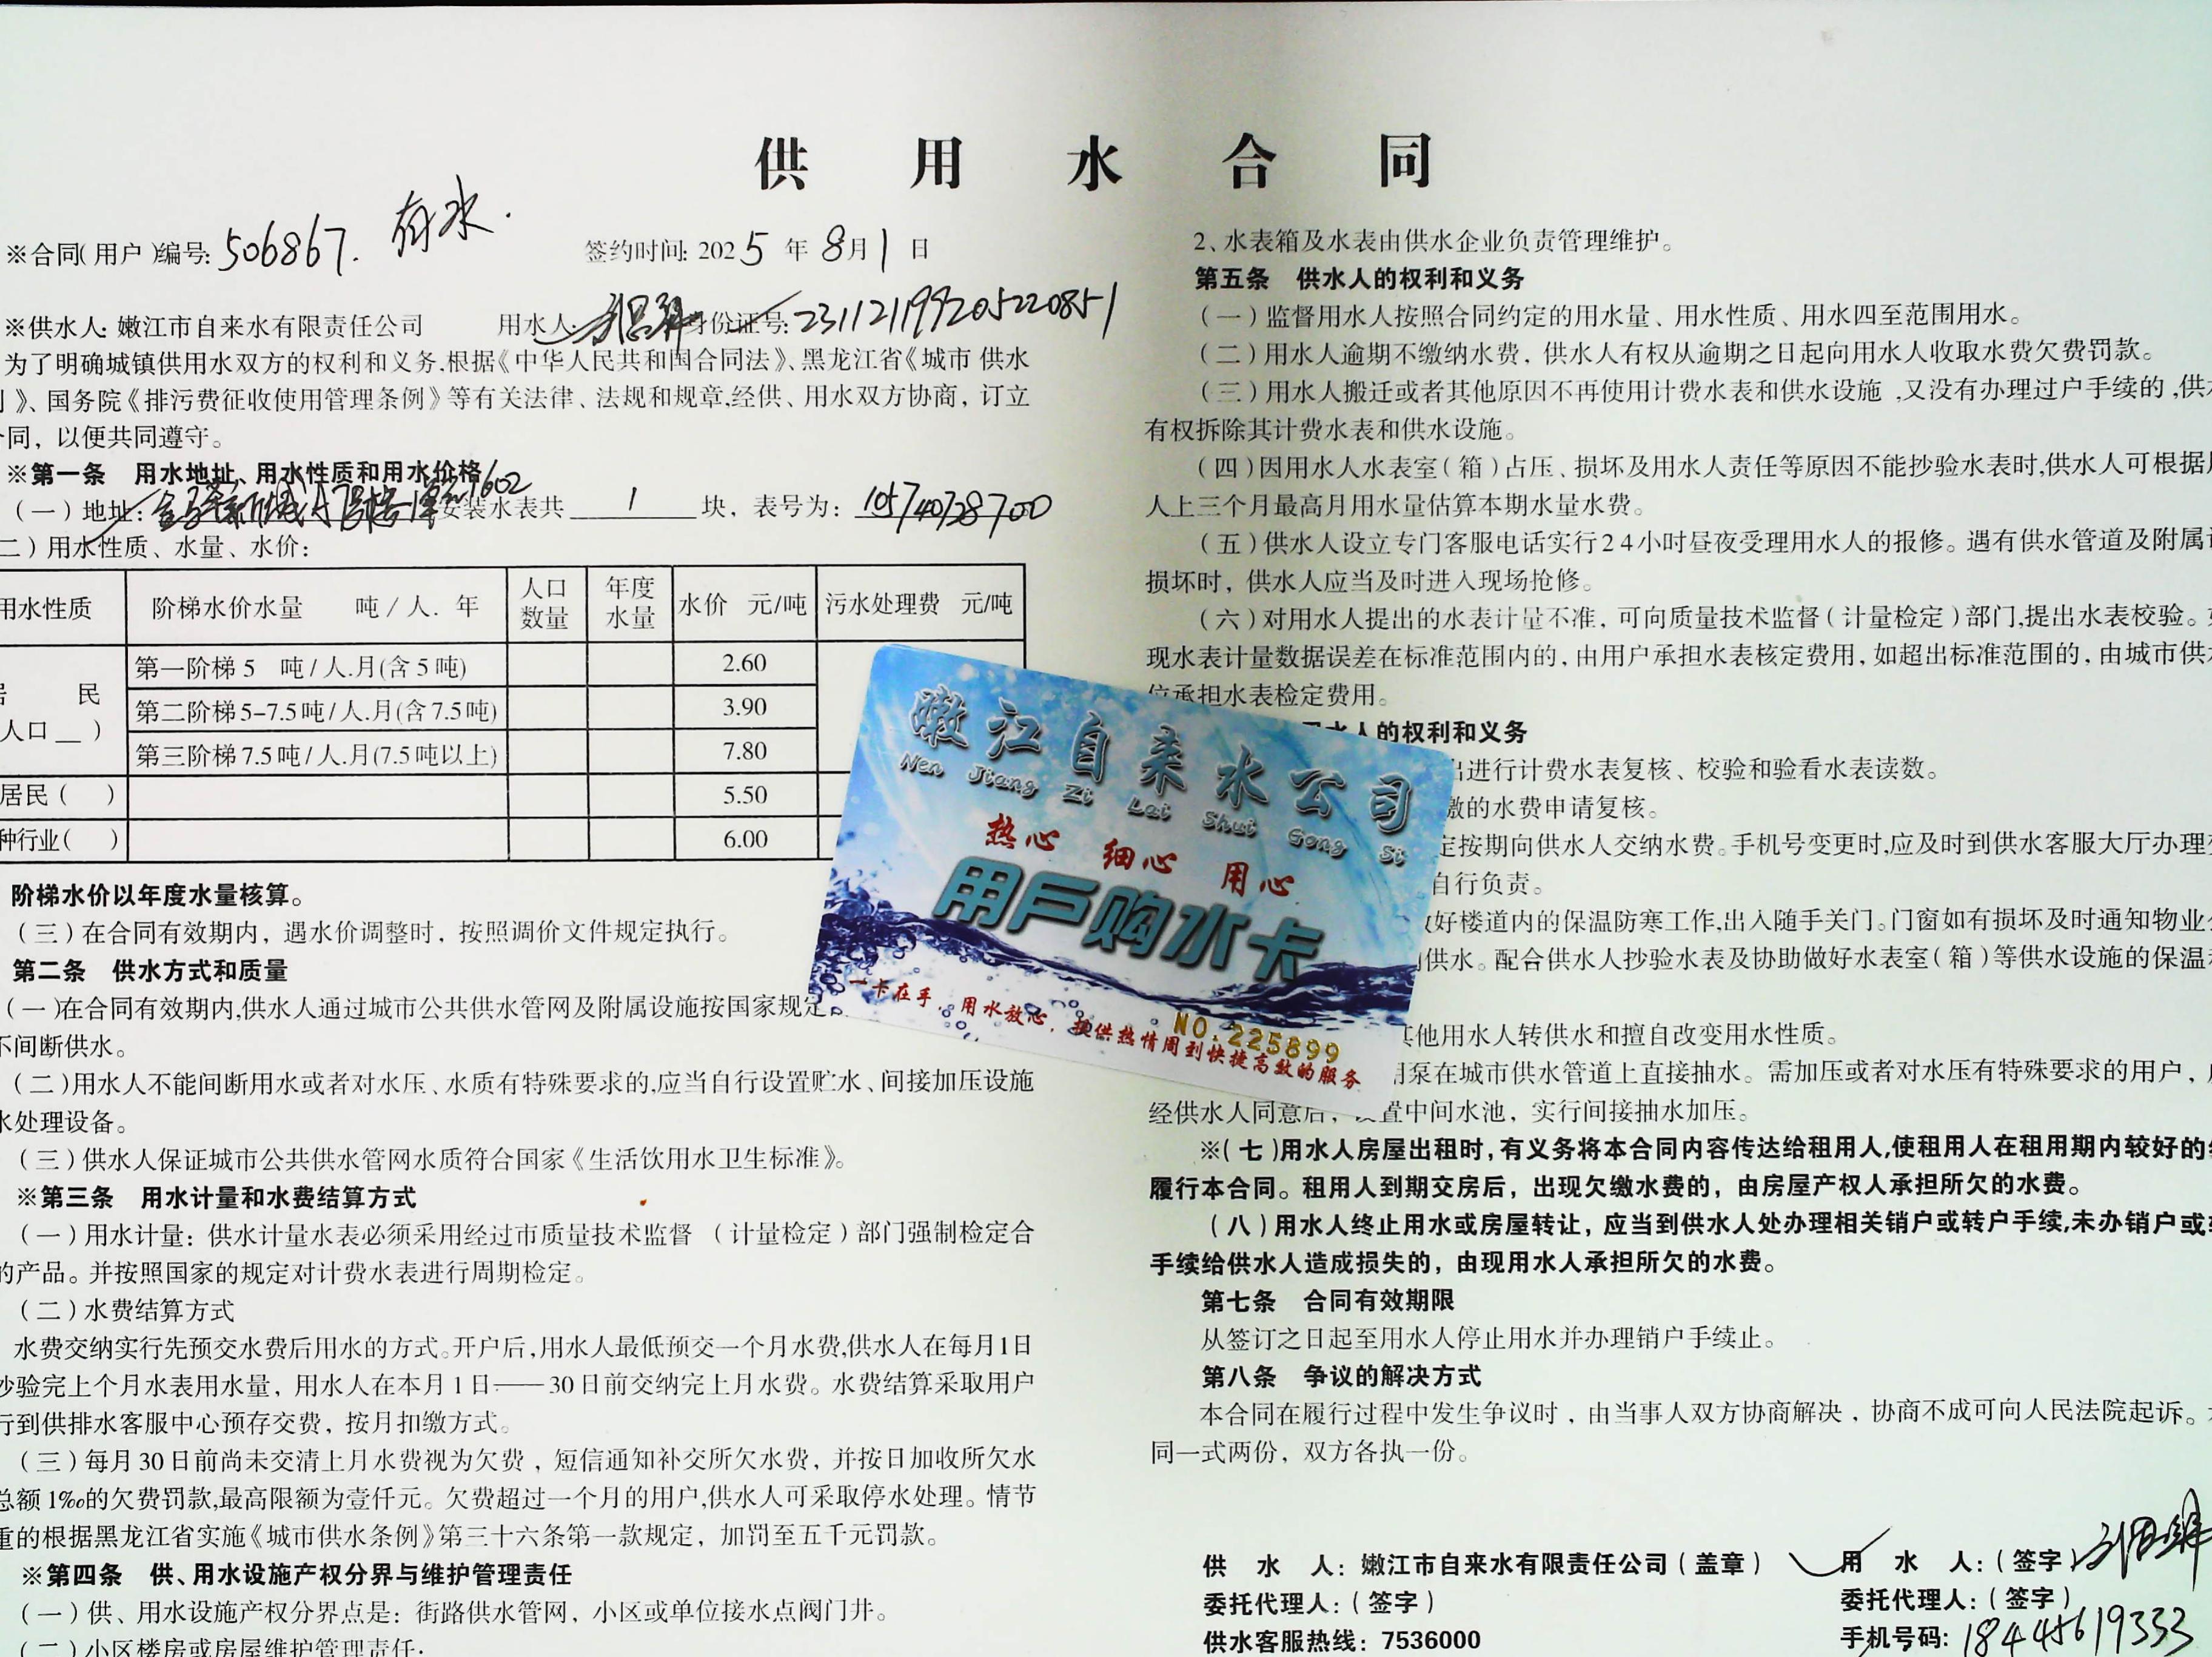 供 用 水 合 同
※合同(用户)编号: 506867. 有水.
签约时间: 2025 年 8月1 日
※供水人: 嫩江市自来水有限责任公司 用水人: 身份证号: 231121199205220851
为了明确城镇供用水双方的权利和义务,根据《中华人民共和国合同法》、黑龙江省《城市 供水
》、国务院《排污费征收使用管理条例》等有关法律、法规和规章,经供、用水双方协商, 订立
同, 以便共同遵守。
※第一条 用水地址、用水性质和用水价格
(一)地址: 1602 安装水表共 1 块, 表号为:
二)用水性质、水量、水价:
用水性质 阶梯水价水量 吨/人. 年 人口数量 年度水量 水价 元/吨 污水处理费 元/吨
民
人口 )
第一阶梯 5 吨/人.月(含 5 吨) 2.60
第二阶梯 5-7.5吨/人.月(含 7.5 吨) 3.90
第三阶梯 7.5 吨/人.月(7.5 吨以上) 7.80
居民( ) 5.50
种行业( ) 6.00
阶梯水价以年度水量核算。
(三)在合同有效期内, 遇水价调整时, 按照调价文件规定执行。
第二条 供水方式和质量
(一)在合同有效期内,供水人通过城市公共供水管网及附属设施按国家规定
不间断供水。
(二)用水人不能间断用水或者对水压、水质有特殊要求的,应当自行设置贮水、间接加压设施
水处理设备。
(三)供水人保证城市公共供水管网水质符合国家《生活饮用水卫生标准》。
※第三条 用水计量和水费结算方式
(一)用水计量: 供水计量水表必须采用经过市质量技术监督 (计量检定)部门强制检定合
的产品。并按照国家的规定对计费水表进行周期检定。
(二)水费结算方式
水费交纳实行先预交水费后用水的方式。开户后,用水人最低预交一个月水费,供水人在每月1日
抄验完上个月水表用水量, 用水人在本月 1 日——30 日前交纳完上月水费。水费结算采取用户
行到供排水客服中心预存交费, 按月扣缴方式。
(三)每月 30 日前尚未交清上月水费视为欠费, 短信通知补交所欠水费, 并按日加收所欠水
总额 1‰的欠费罚款,最高限额为壹仟元。欠费超过一个月的用户,供水人可采取停水处理。情节
重的根据黑龙江省实施《城市供水条例》第三十六条第一款规定, 加罚至五千元罚款。
※第四条 供、用水设施产权分界与维护管理责任
(一)供、用水设施产权分界点是: 街路供水管网, 小区或单位接水点阀门井。
(二)小区楼房或房屋维护管理责任:
2、水表箱及水表由供水企业负责管理维护。
第五条 供水人的权利和义务
(一)监督用水人按照合同约定的用水量、用水性质、用水四至范围用水。
(二)用水人逾期不缴纳水费, 供水人有权从逾期之日起向用水人收取水费欠费罚款。
(三)用水人搬迁或者其他原因不再使用计费水表和供水设施,又没有办理过户手续的,供
有权拆除其计费水表和供水设施。
(四)因用水人水表室(箱)占压、损坏及用水人责任等原因不能抄验水表时,供水人可根据
人上三个月最高月用水量估算本期水量水费。
(五)供水人设立专门客服电话实行24小时昼夜受理用水人的报修。遇有供水管道及附属
损坏时, 供水人应当及时进入现场抢修。
(六)对用水人提出的水表计量不准, 可向质量技术监督(计量检定)部门,提出水表校验。
现水表计量数据误差在标准范围内的, 由用户承担水表核定费用, 如超出标准范围的, 由城市供
位承担水表检定费用。
用水人的权利和义务
出进行计费水表复核、校验和验看水表读数。
缴的水费申请复核。
定按期向供水人交纳水费。手机号变更时,应及时到供水客服大厅办理
自行负责。
好楼道内的保温防寒工作,出入随手关门。门窗如有损坏及时通知物业
供水。配合供水人抄验水表及协助做好水表室(箱)等供水设施的保温
其他用水人转供水和擅自改变用水性质。
用泵在城市供水管道上直接抽水。需加压或者对水压有特殊要求的用户,
经供水人同意后, 设置中间水池, 实行间接抽水加压。
※(七)用水人房屋出租时,有义务将本合同内容传达给租用人,使租用人在租用期内较好的
履行本合同。租用人到期交房后, 出现欠缴水费的, 由房屋产权人承担所欠的水费。
(八)用水人终止用水或房屋转让, 应当到供水人处办理相关销户或转户手续,未办销户或
手续给供水人造成损失的, 由现用水人承担所欠的水费。
第七条 合同有效期限
从签订之日起至用水人停止用水并办理销户手续止。
第八条 争议的解决方式
本合同在履行过程中发生争议时, 由当事人双方协商解决, 协商不成可向人民法院起诉。
同一式两份, 双方各执一份。
供 水 人: 嫩江市自来水有限责任公司(盖章) 用 水 人:(签字)
委托代理人:(签字) 委托代理人:(签字)
供水客服热线: 7536000 手机号码: 18445619333
嫩江自来水公司
Nen Jiang Zi Lai Shui Gong Si
热心 细心 用心
用户购水卡
NO.225899
一卡在手,用水放心,提供热情周到快捷高效的服务